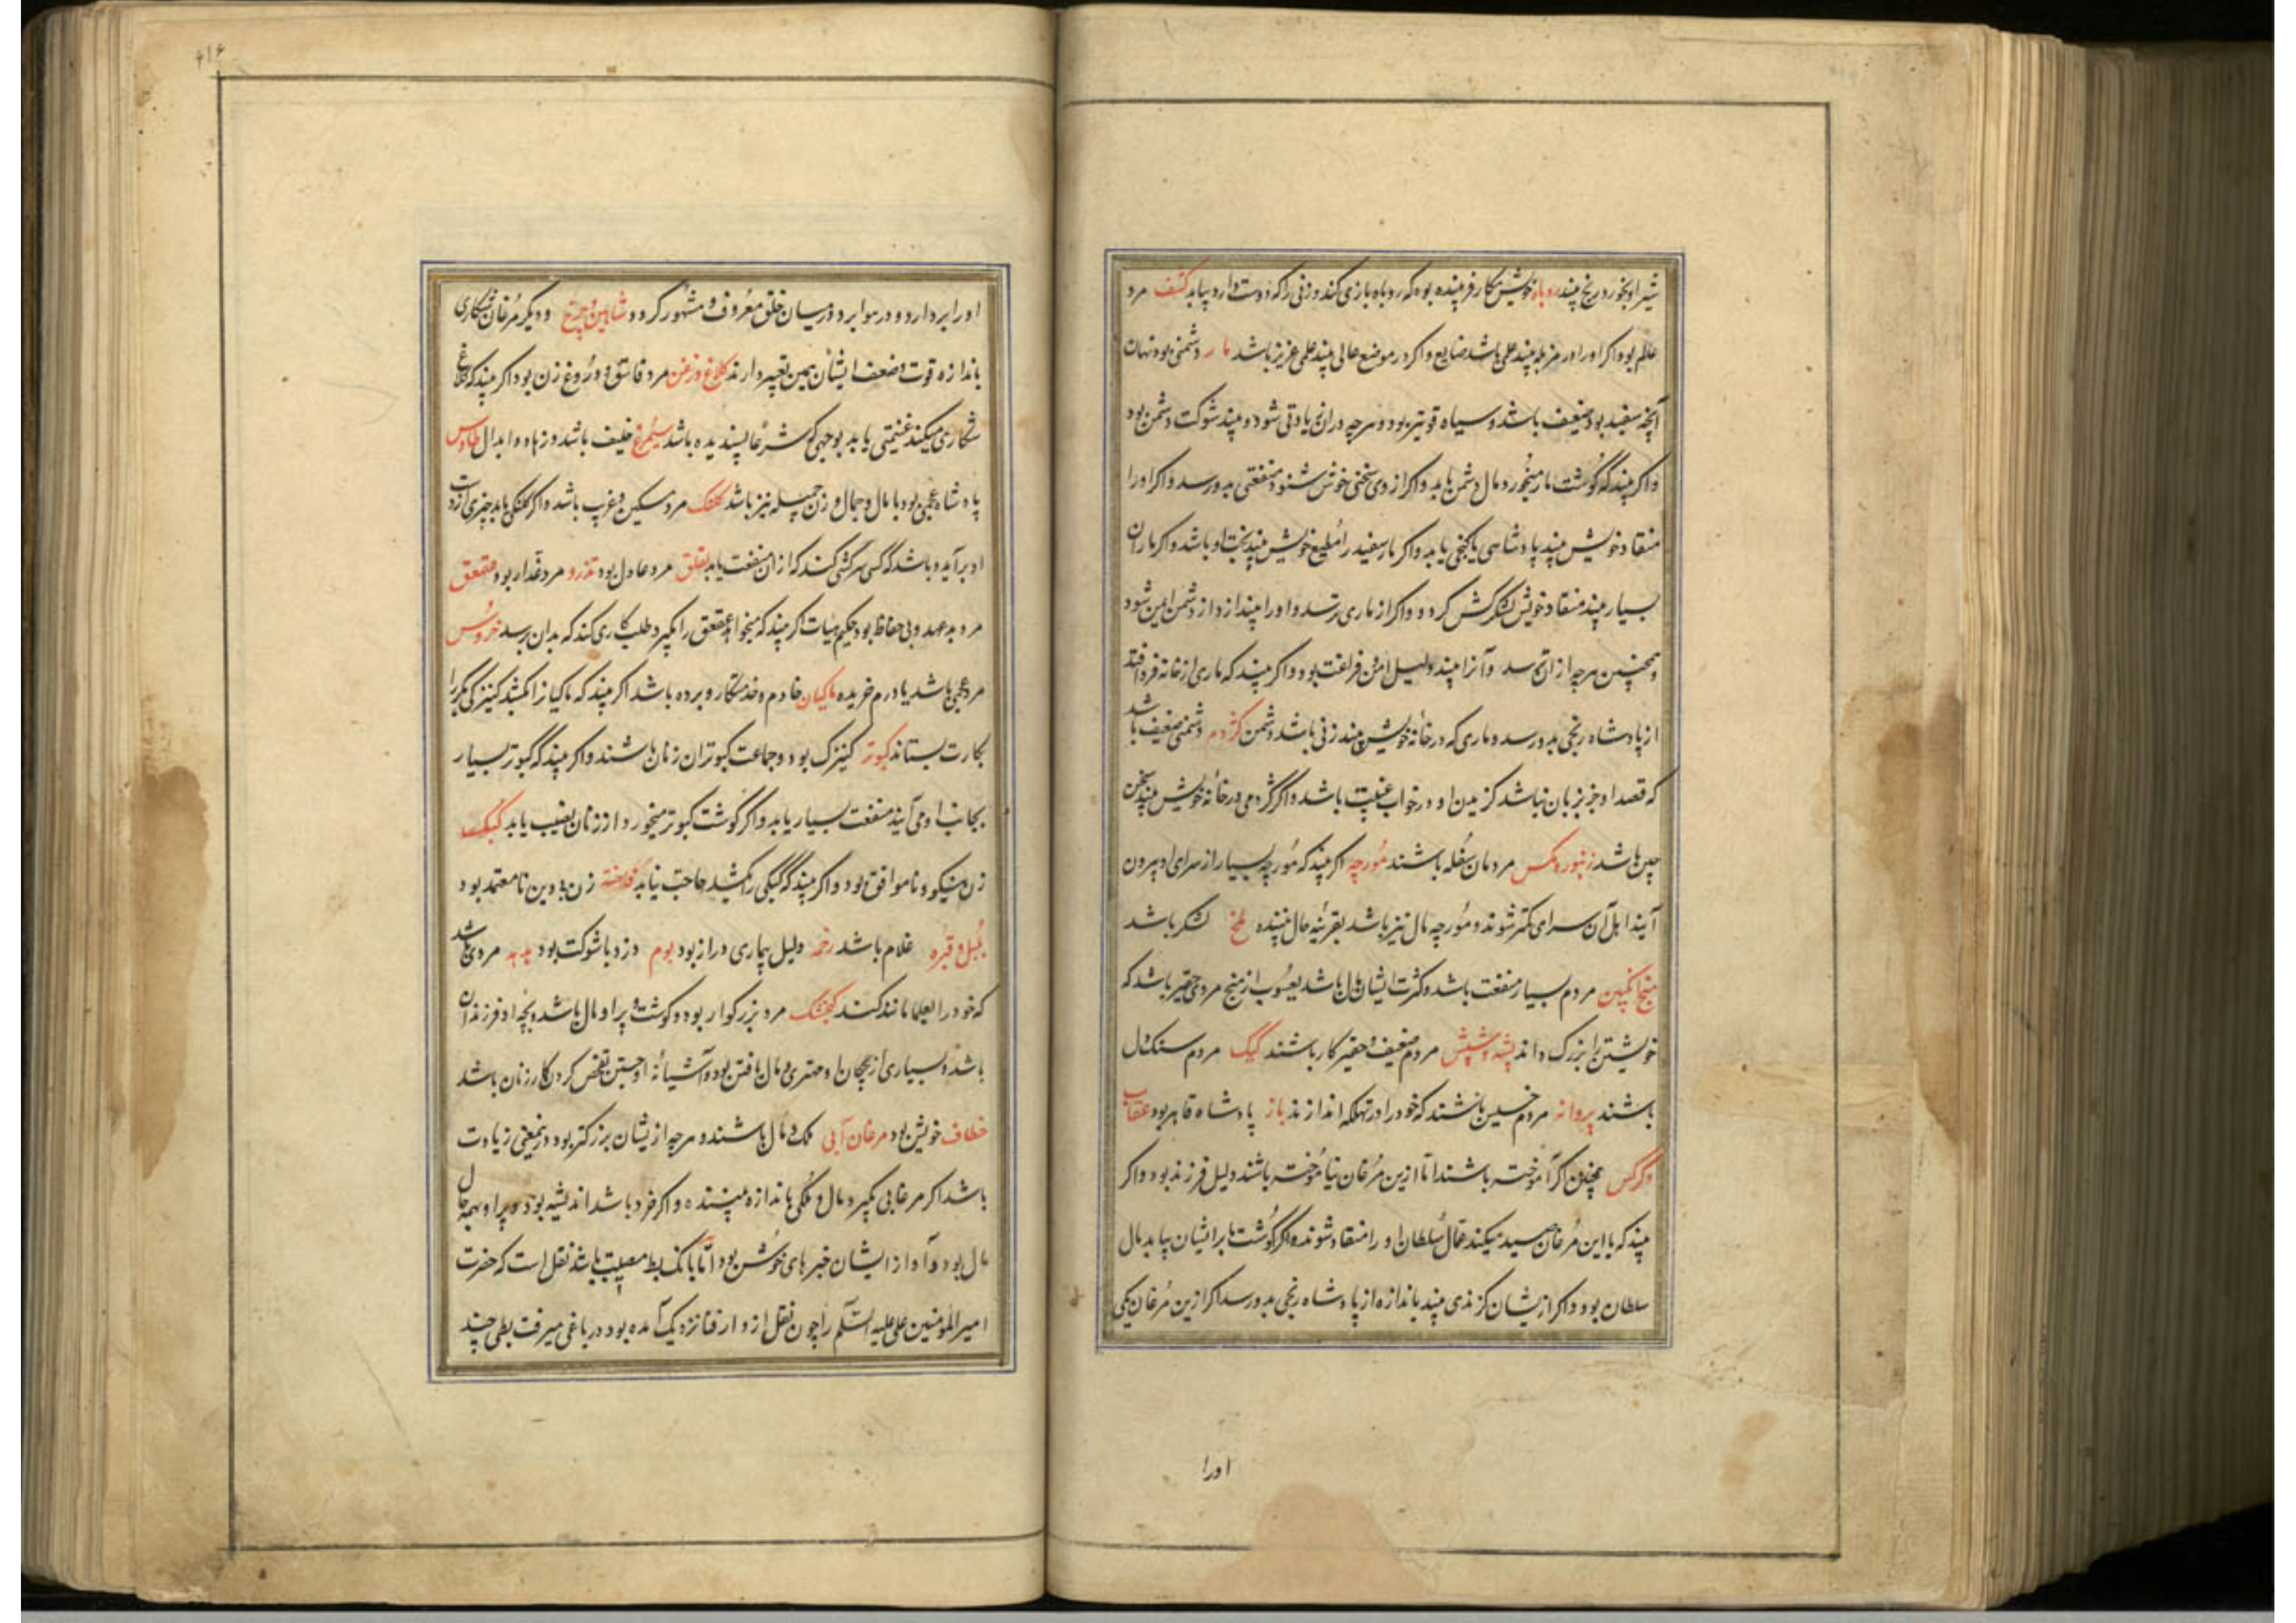 شیر او بخورد رنج بیند روباه خویش مکار فریبنده بود که روباه بازی کند و زنی را که دوست دارد بیابد کشف مرد
عالم بود و اگر او را در مزبله بیند علمی باشد ضایع و اگر در موضع عالی بیند علمی عزیز باشد مار دشمنی بود نهان
آنچه سفید بود ضعیف باشد و سیاه قوی‌تر بود و هرچه در آن زیادتی شود و بیند شوکت دشمن بود
و اگر بیند که گوشت مار میخورد مال دشمن یابد و اگر از وی سخنی خوش شنود منفعتی بدو رسد و اگر او را
منقاد خویش بیند پادشاهی یا گنجی یابد و اگر مار سفید را مطیع خویش بیند بخت او باشد و اگر ماران
بسیار بیند منقاد خویش لشکرکش گردد و اگر از ماری بترسد و او را بیندازد از دشمن ایمن شود
و همچنین هرچه از آن ترسد و آنرا بیند دلیل امن و فراغت بود و اگر بیند که ماری از خانه فرو افتد
از پادشاه رنجی بدو رسد و ماری که در خانه خویش بیند زنی باشد دشمن کژدم دشمنی ضعیف باشد
که قصد او جز بزبان نباشد گزیدن او در خواب غیبت باشد و اگر کژدمی در خانه خویش بیند سخن
چین باشد زنبور و مگس مردمان سفله باشند مورچه اگر بیند که مورچه بسیار از سرای او بیرون
آیند اهل آن سرای کمتر شوند و مورچه مال نیز باشد بقرینه حال بیننده ملخ لشکر باشد
منج انگبین مردم بسیار منفعت باشد و کثرت ایشان مال باشد یعسوب از منج مردی حقیر باشد که
خویشتن را بزرگ داند پشه و شپش مردم ضعیف و حقیر کار باشند کیک مردم سنکدل
باشند پروانه مردم خسیس باشند که خود را در تهلکه اندازند باز پادشاه قاهر بود عقاب
و کرکس همچنین اگر آموخته باشند اما ازین مرغان نیاموخته باشند دلیل فرزند بود و اگر
بیند که با این مرغان صید میکند عمال سلطان او را منقاد شوند و اگر گوشت یا پر ایشان بیابد مال
سلطان بود و اگر ازیشان گزندی بیند باندازه از پادشاه رنجی بدو رسد اگر ازین مرغان یکی
اورا
۴۱۶
او را بردارد و در هوا برد در میان خلق معروف و مشهور گردد شاهین و چرغ و دیگر مرغان شکاری
باندازه قوت و ضعف ایشان همین تعبیر دارند کلاغ و زغن مرد فاسق و دروغ زن بود اگر بیند که کلاغ
شکاری میکند غنیمتی یابد بوجهی که شرعا پسندیده باشد سیمرغ خلیفت باشد و زهاد و ابدال طاوس
پادشاه عجمی بود با مال و جمال و زن جمیله نیز باشد کلنک مرد مسکین و غریب باشد و اگر کلنکی یابد چیزی از دست
او برآید و باشد که کسی سرکشی کند که از آن منفعت یابد لقلق مرد عادل بود تذرو مرد غدار بود عقعق
مرد بد عهد و بی حفاظ بود حکیم هیات اگر بیند که میخواهد عقعق را بگیرد طلب کاری کند که بدان نرسد خروس
مرد عجمی باشد یا درم خریده ماکیان خادم و خدمتکار و برده باشد اگر بیند که ماکیانرا بکشد کنیزکی بکر را
بکارت بستاند کبوتر کنیزک بود و جماعت کبوتران زنان باشند و اگر بیند که کبوتر بسیار
بجانب او می آیند منفعت بسیار یابد و اگر گوشت کبوتر میخورد از زنان نصیب یابد کبک
زن نیکو و ناموافق بود و اگر بیند که کبکی را بکشد حاجت نیابد فاخته زن بی دین نامعتمد بود
بلبل و قبره غلام باشد رخمه دلیل بیماری دراز بود بوم دزد با شوکت بود هدهد مردی باشد
که خود را بعلما مانند کند کنجشک مرد بزرگوار بود و گوشت و پر او مال باشد و بچه او فرزندان
باشد و بسیاری از بچگان او مهتری و مال یافتن بود و آشیانه او جستن تفحص کردن کار زنان باشد
خطاف خویش بود مرغان آبی ملک و مال باشند و هرچه ازیشان بزرگتر بود در معنی زیادت
باشد اگر مرغابی بگیرد مال و ملکی باندازه بیننده و اگر فرد باشد اندیشه بود و پر او بهمه حال
مال بود و آواز ایشان خبرهای خوش بود اما بانگ بط مصیبت باشد نقل است که حضرت
امیرالمومنین علی علیه السلام را چون نقل از دار فنا نزدیک آمده بود در باغی میرفت بطی چند